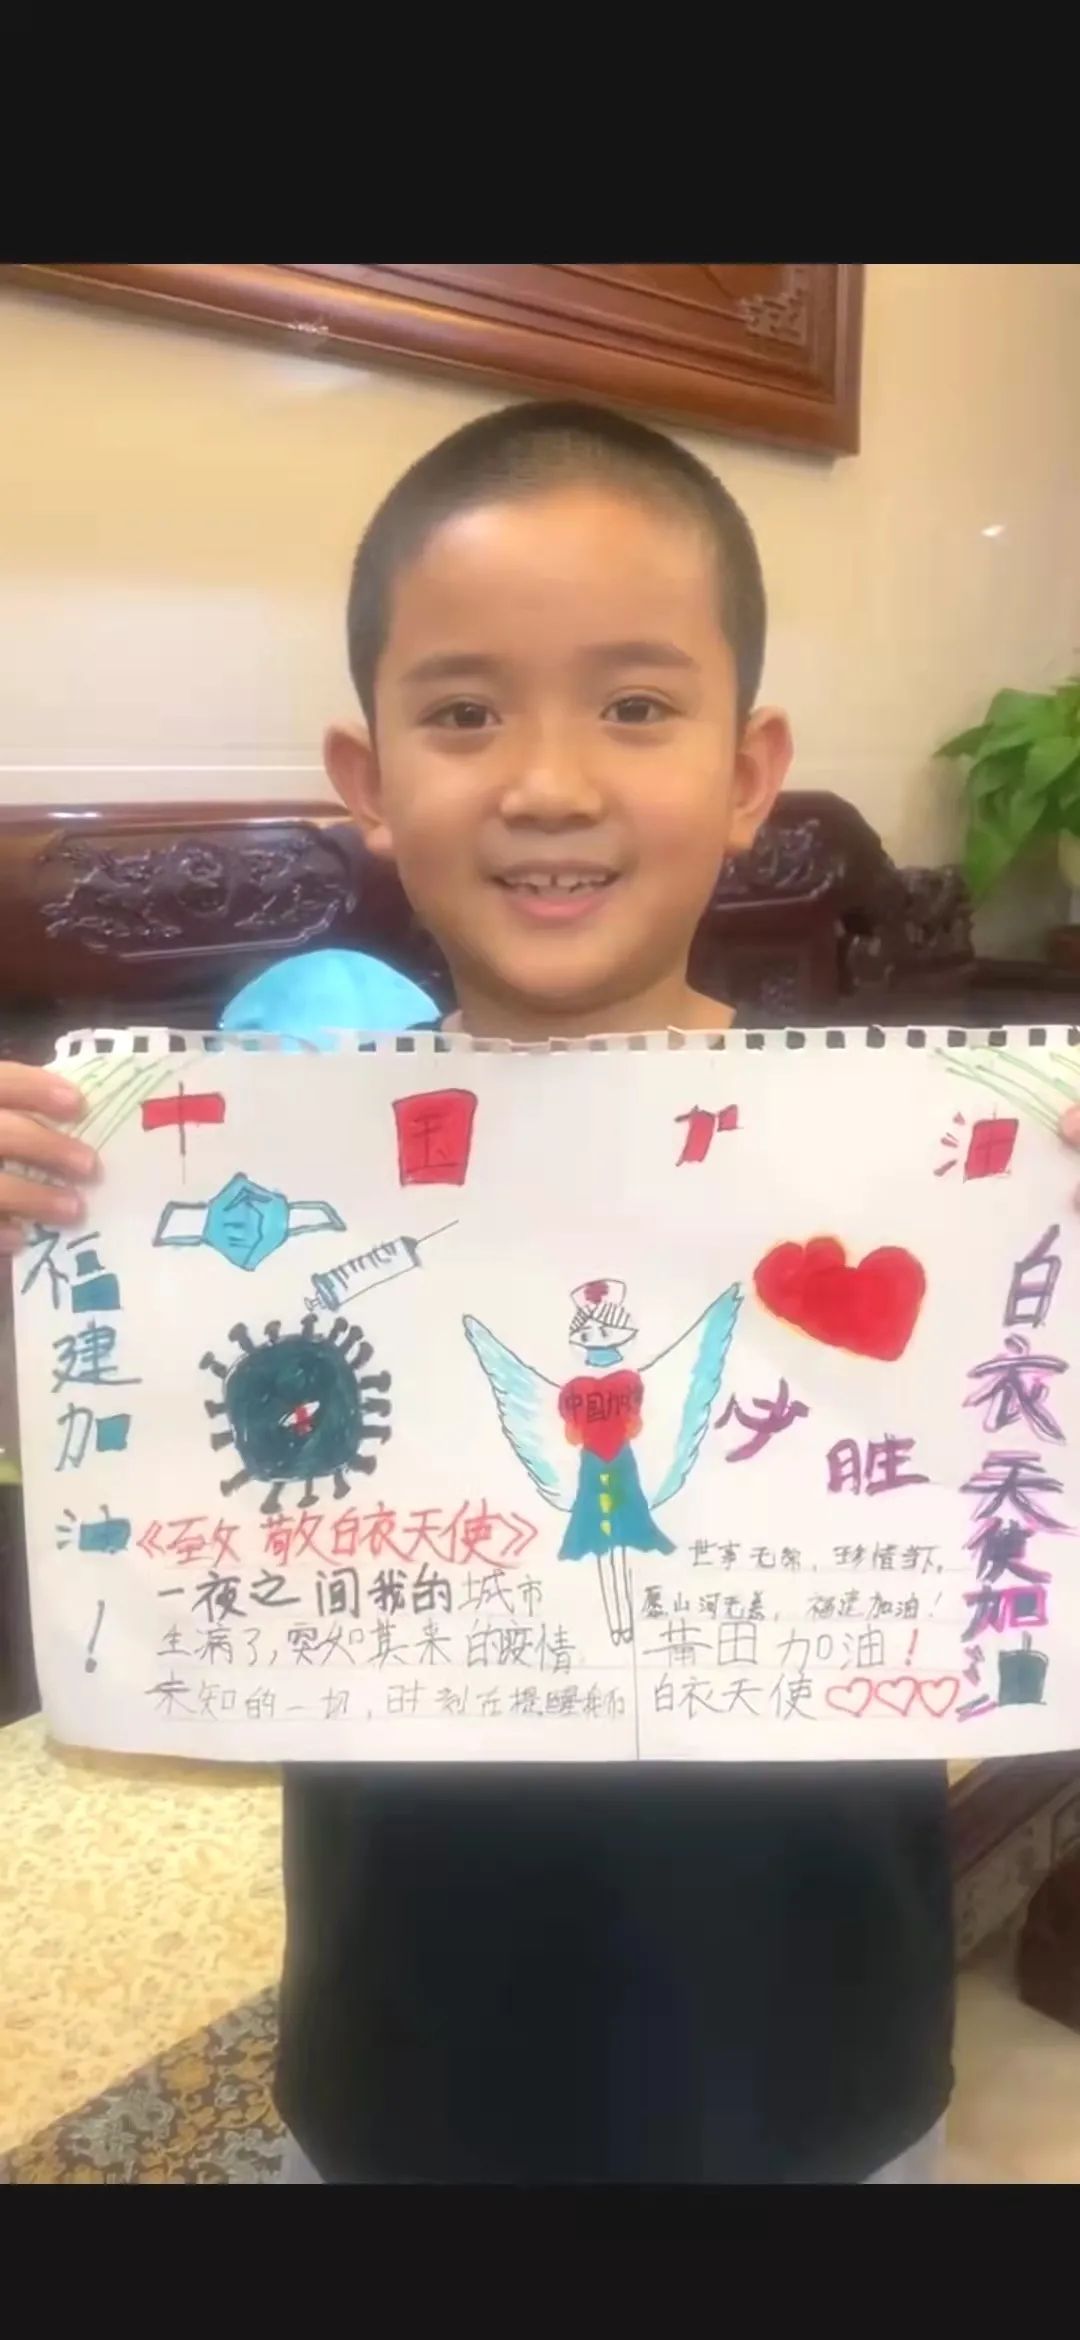 中国加油
福建加油！
中国加油
必胜
白衣天使加油
《致敬白衣天使》
一夜之间我的城市
生病了,突如其来的疫情
未知的一切,时刻在提醒
世事无常,珍惜当下,
愿山河无恙,福建加油!
莆田加油!
白衣天使♡♡♡